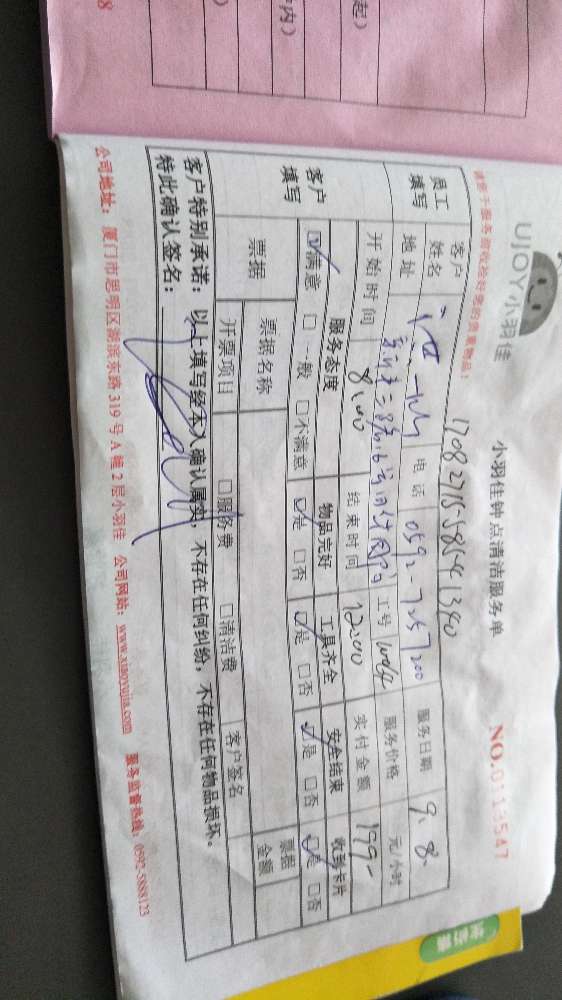 8
起）
内）
UJOY小羽佳
小羽佳钟点清洁服务单
NO.0113547
请您于服务前收捡好您的贵重物品！
员工填写
客户姓名
电话 0592-7257200
服务日期 9.8
地址
工号
服务价格 元/小时
开始时间 8:00
结束时间 12:00
实付金额 199-
客户填写
服务态度 物品完好 工具齐全 安全结束 收到卡片
☑满意 □一般 □不满意 ☑是 □否 ☑是 □否 ☑是 □否 ☑是 □否
票据 票据名称 票据金额
开票项目 □服务费 □清洁费 客户签名
客户特别承诺：以上填写经本人确认属实，不存在任何纠纷，不存在任何物品损坏。
特此确认签名：
公司地址：厦门市思明区湖滨东路319号A幢2层小羽佳 公司网站：www.xiaoyujia.com 服务监督热线：0592-5888123